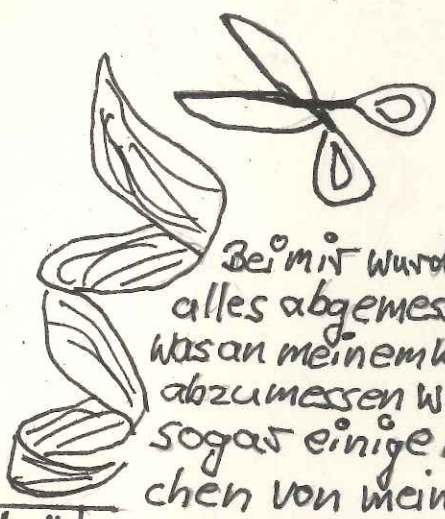 Bei mir wurd
alles abgemess
was an meinem K
abzumessen w
sogar einige
chen von mein